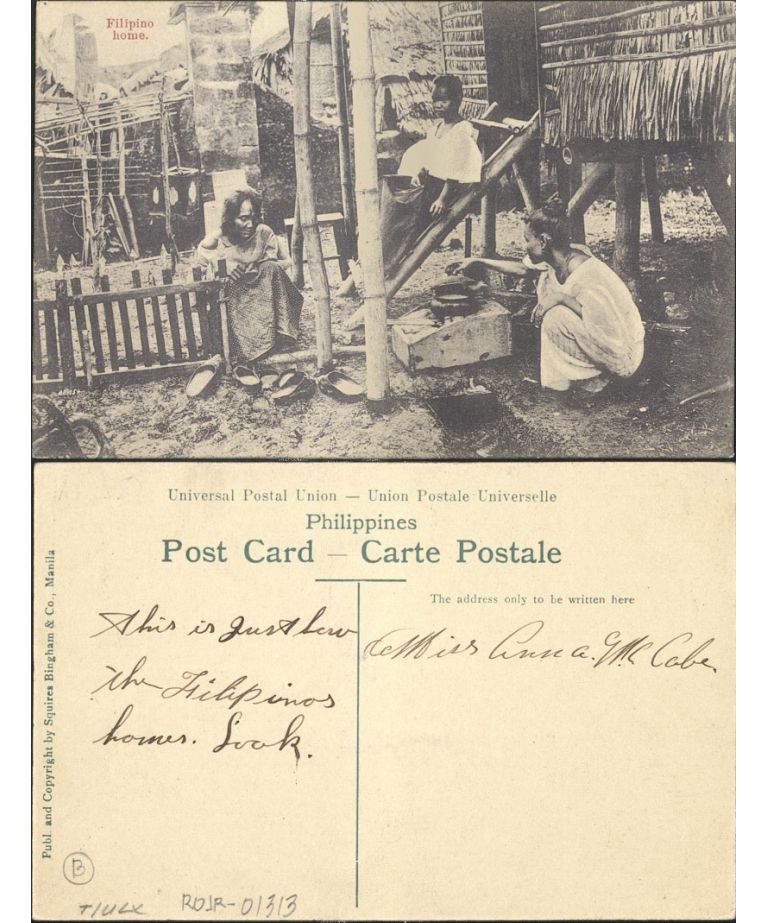 Filipino
home.
Universal Postal Union — Union Postale Universelle
Philippines
Post Card — Carte Postale
The address only to be written here
This is Just how
the Filipinos
homes. Look.
Miss Anna. Mc Cabe.
Publ. and Copyright by Squires Bingham & Co., Manila
B
RDJR-01313